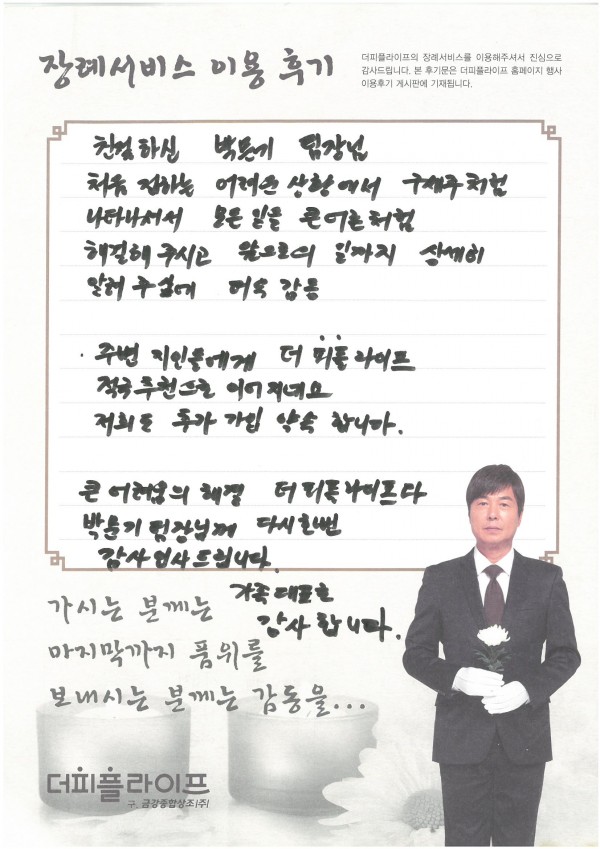 장례서비스 이용 후기
더피플라이프의 장례서비스를 이용해주셔서 진심으로
감사드립니다. 본 후기문은 더피플라이프 홈페이지 행사
이용후기 게시판에 기재됩니다.
친절하신 박문기 팀장님
처음 접하는 어려운 상황에서 구세주처럼
나타나셔서 모든 일을 큰어른처럼
해결해 주시고 앞으로의 일까지 상세히
알려 주심에 더욱 감동
· 주변 지인들에게 더 피플 라이프
적극 추천으로 이어지네요
저희도 추가 가입 약속 합니다.
큰 어려움의 해결 더 피플라이프다
박문기 팀장님께 다시한번
감사 인사 드립니다.
가족 대표로
감사 합니다.
가시는 분께는
마지막까지 품위를
보내시는 분께는 감동을...
더피플라이프
구. 금강종합상조(주)